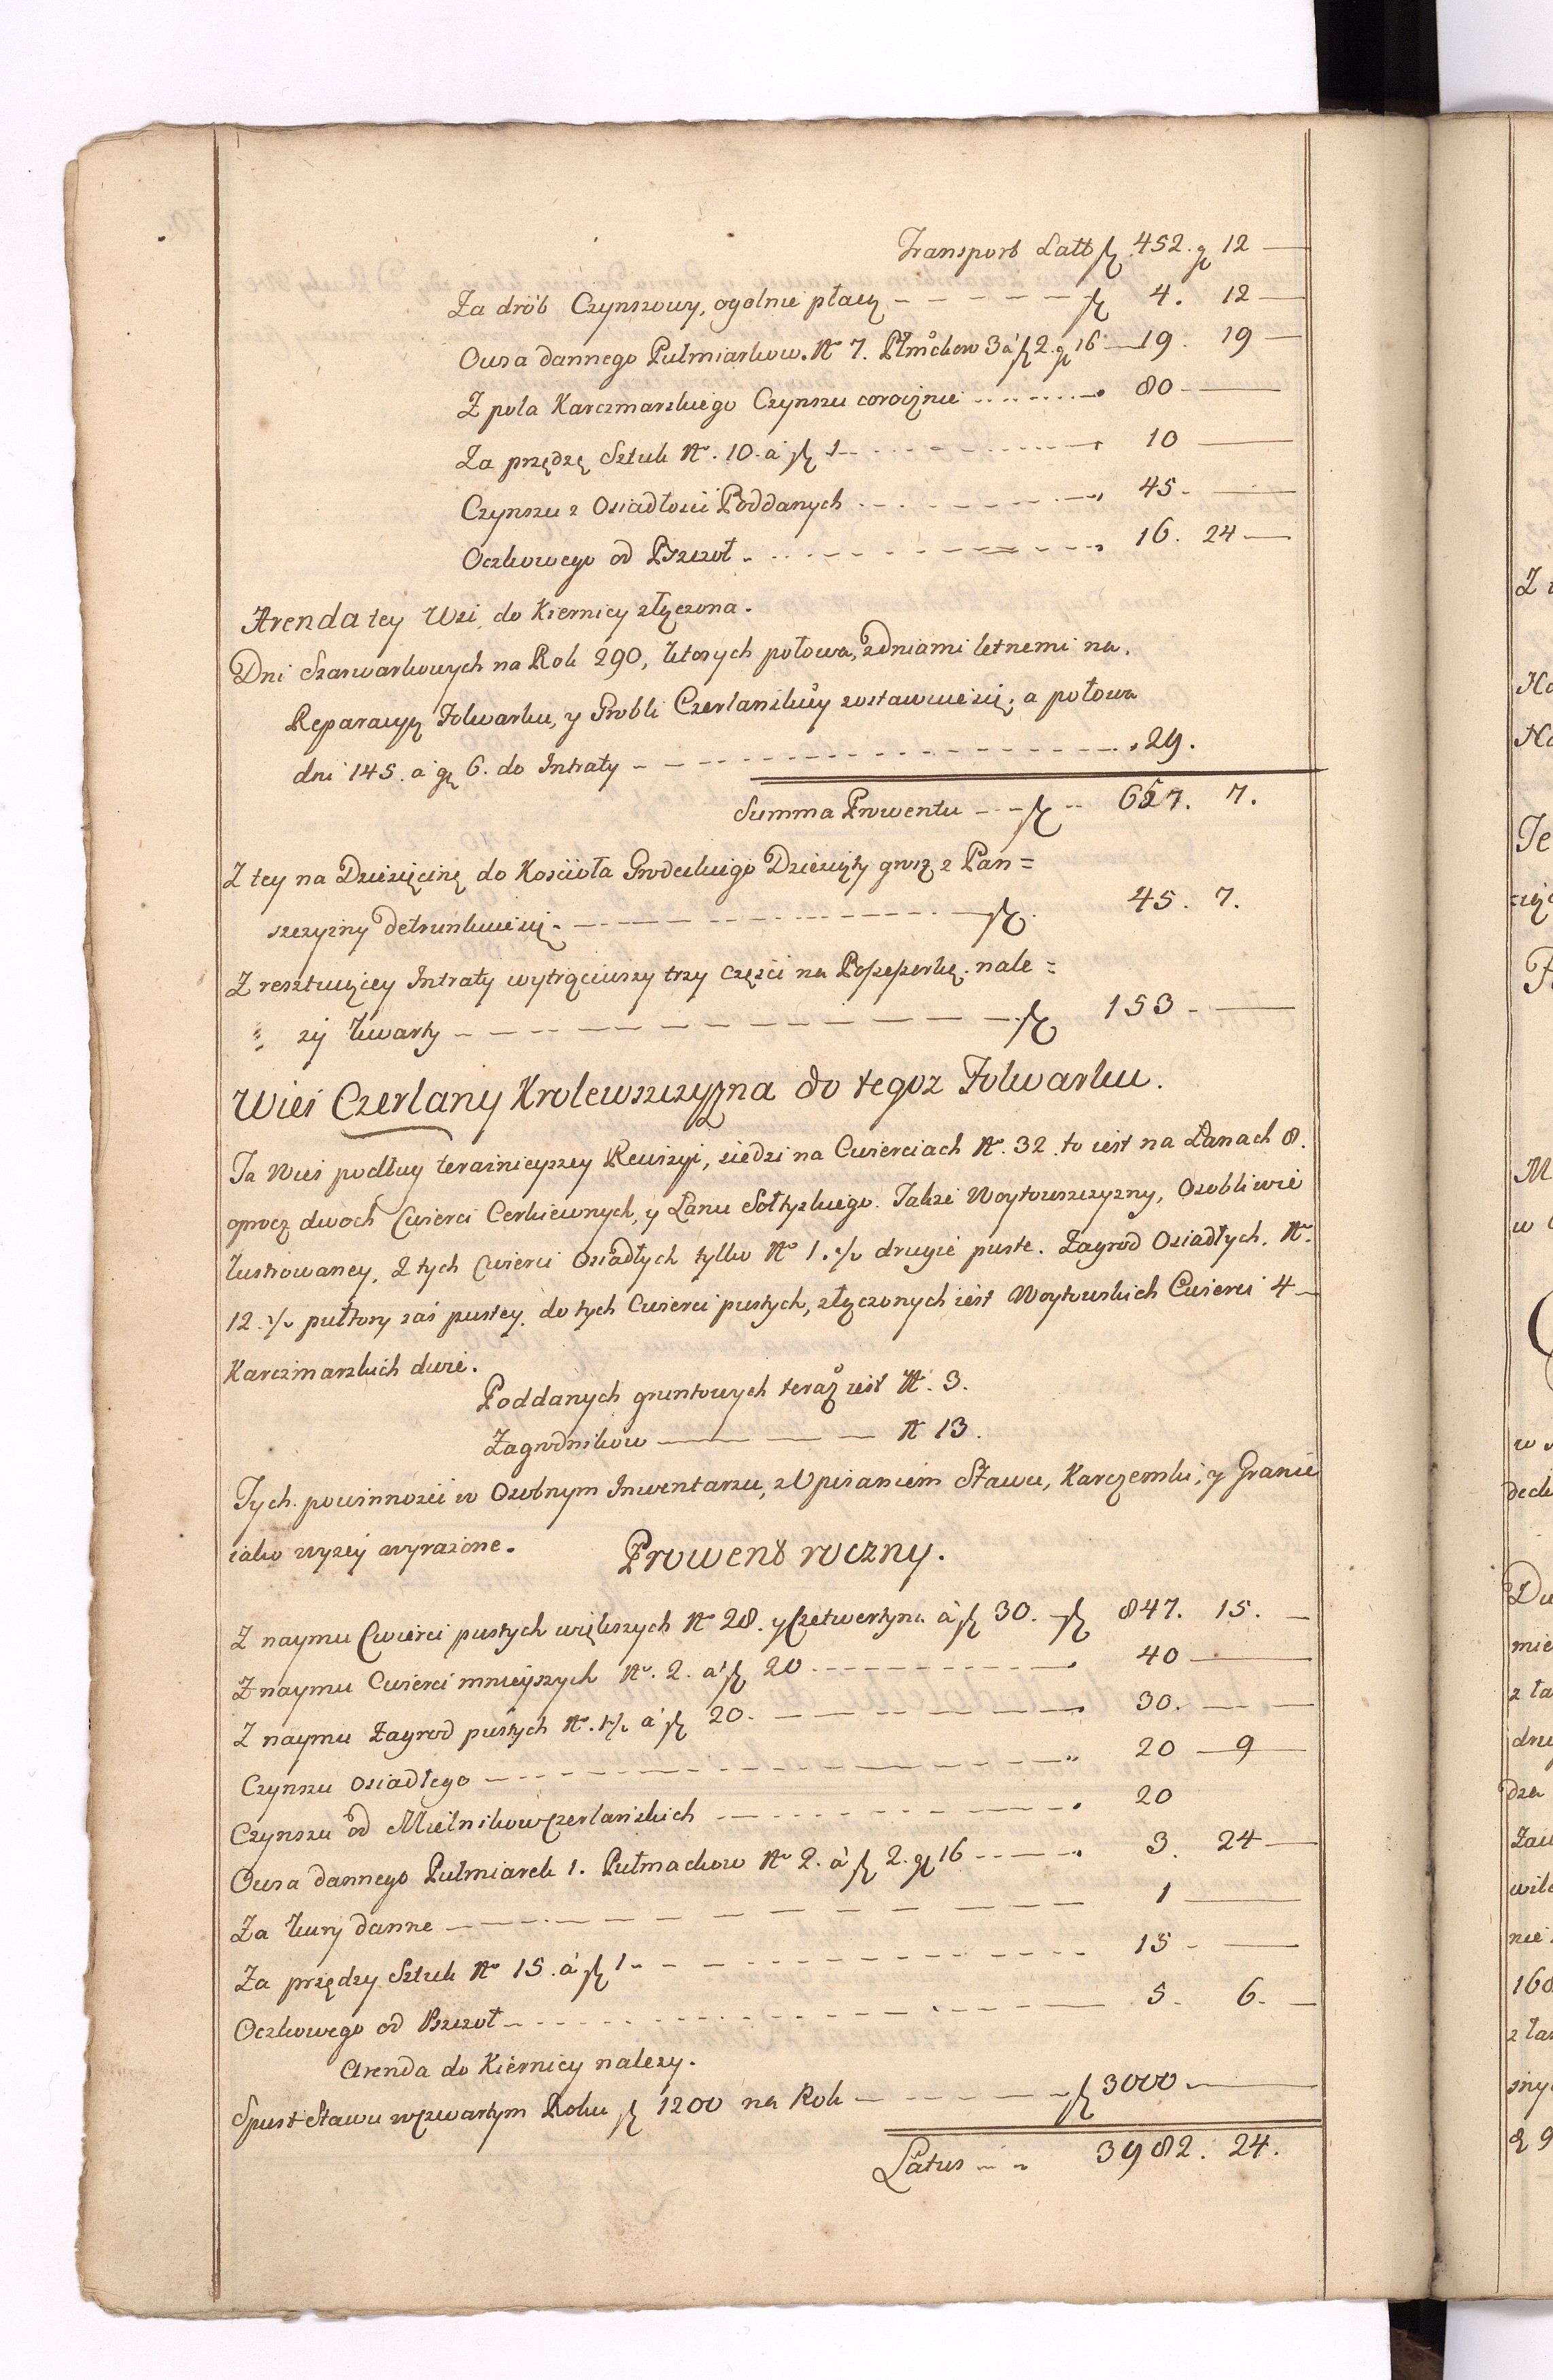 Transport Latt fl 452. gr 12 —
Za drób Czynszowy, ogolnie płacą — — — — — fl 4. 12 —
Owsa dannego Pułmiarkow. No 7. Półmckow 3 á fl 2. gr 16 — 19. 19 —
Z pola Karczmarskiego Czynszu corocznie ........ 80 —
Za przędzę Sztuk No. 10. á fl 1 — ........ 10 —
Czynszu z Osiadłości Poddanych ........ 45 —
Oczkowego od Pszczoł ........ 16. 24 —
Arenda tey Wsi, do Kiernicy złączona.
Dni Szarwarkowych na Rok 290, ktorych połowa, z dniami letnemi na.
Reparacyą Folwarku, y Grobli Czerlanskiey zostawuie się; a połowa
dni 145. á gr 6. do Intraty — — — — — 29.
Summa Prowentu — fl — 657. 7.
Z tey na Dziesięcinę do Kościoła Grodeckiego Dziesięty grosz z Pan=
szczyzny detrunkuie się. — — — — fl. 45. 7.
Z resztuiącey Intraty wytrąciwszy trzy części na Possessorkę. nale=
ży kwarty — — — — — — — — fl 153 —
Wieś Czerlany Krolewszczyzna do tegoz Folwarku.
Ta Wieś podług teraśnieyszey Rewizyi, siedzi na Cwierciach No. 32. to iest na Łanach 8.
oprocz dwoch Cwierci Cerkiewnych, y Łanu Sołtyskiego. Takze Woytowszczyzny, Osobliwie
lustrowaney, z tych Cwierci Osiadłych tylko No 1. ½ drugie puste. Zagrod Osiadłych. No.
12. ½ pułtory zaś pustey. do tych Cwierci pustych, złączonych iest Woytowskich Cwierci 4 —
Karczmarskich dwie.
Poddanych gruntowych teraz iest No. 3.
Zagrodnikow — — — No 13.
Tych powinności w Osobnym Inwentarzu, z Opisaniem Stawu, Karczemki, y Granic
iako wyzey wyrazone.
Prowent roczny.
Z naymu Cwierci pustych większych No 28. y Czetwertyna á fl 30. — fl 847. 15. —
Z naymu Cwierci mnieyszych No. 2. á fl 20 — — — — 40 —
Z naymu Zagrod pustych No. 1½ á fl 20. — — — — 30. — —
Czynszu Osiadłego — — — — — 20 — 9 —
Czynszu od Mielnikow Czerlańskich — — — — 20
Owsa dannego Pułmiarek 1. Pułmackow No 2. á fl 2. gr 16 — — — 3. 24 —
Za kury danne — — — — — — — — 1 —
Za przędzy Sztuk No 15. á fl 1 — — — — — — 15 — —
Oczkowego od Pszczoł — — — — — — 5. 6. —
Arenda do Kiernicy nalezy.
Spust Stawu w czwartym Roku fl 1200 na Rok — — — — fl 3000 —
Latus — — 3982. 24.